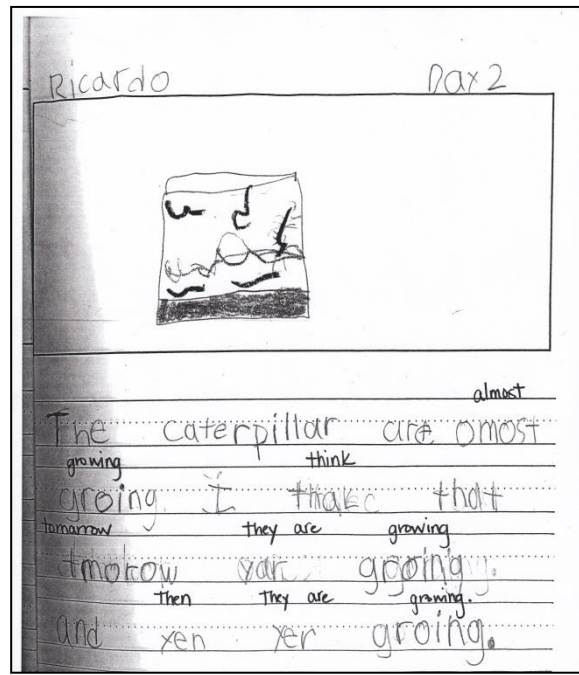 Ricardo Day 2
almost
The caterpillar are omost
growing think
groing I thakc that
tomarrow they are growing
tmorow yar groing.
then they are growing.
and yen yer groing.